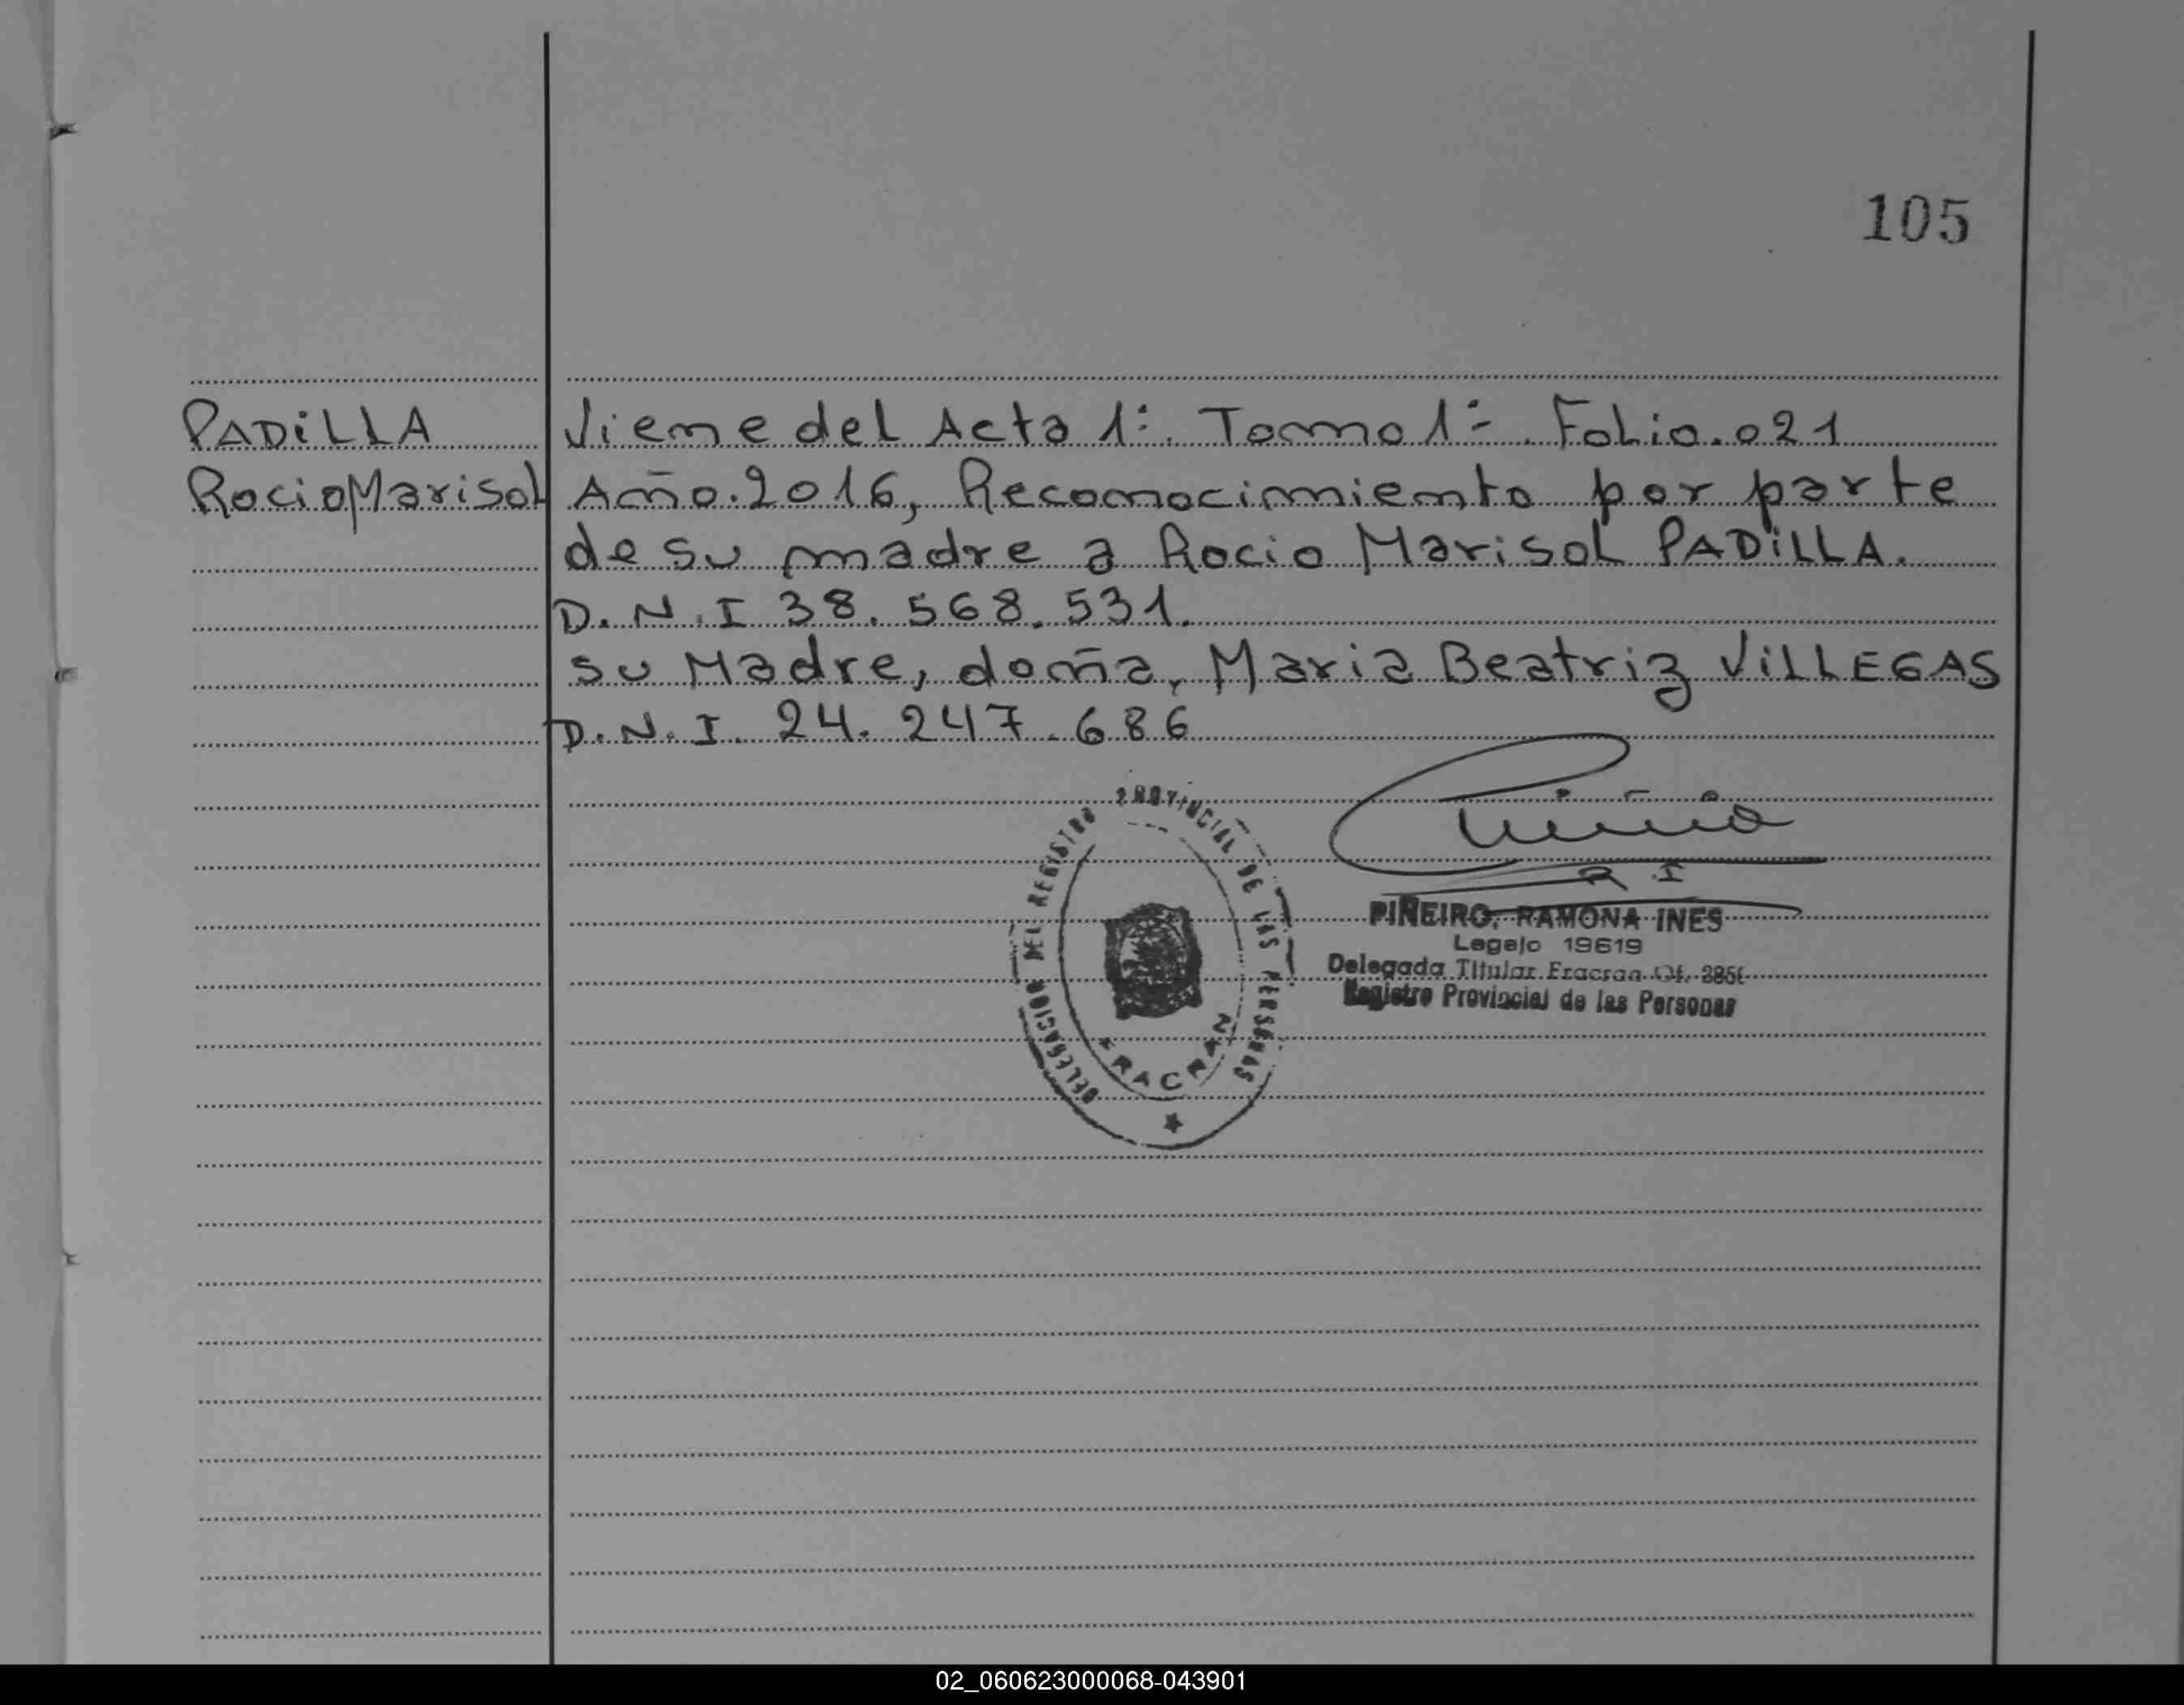 105
PADILLA
Rocio Marisol
Viene del Acta 1º. Tomo 1º. Folio.021
Año.2016, Reconocimiento por parte
de su madre a Rocio Marisol PADILLA.
D.N.I 38.568.531.
su Madre, doña, Maria Beatriz VILLEGAS
D.N.I. 24.247.686
DELEGACION DEL REGISTRO PROVINCIAL DE LAS PERSONAS
FRACRAN
R I
PIÑEIRO, RAMONA INES
Legajo 19619
Delegada Titular Fracran Of.
Registro Provincial de las Personas
02_060623000068-043901